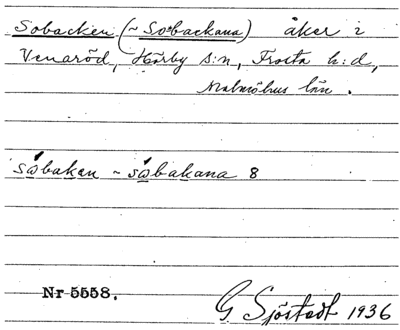 Sobacken (~ Sobackana) åker i
Venaröd, Hörby s:n, Frosta h:d,
Malmöhus län.
sóbakan ~ sóbakana 8
Nr 5558.
G Sjöstedt 1936